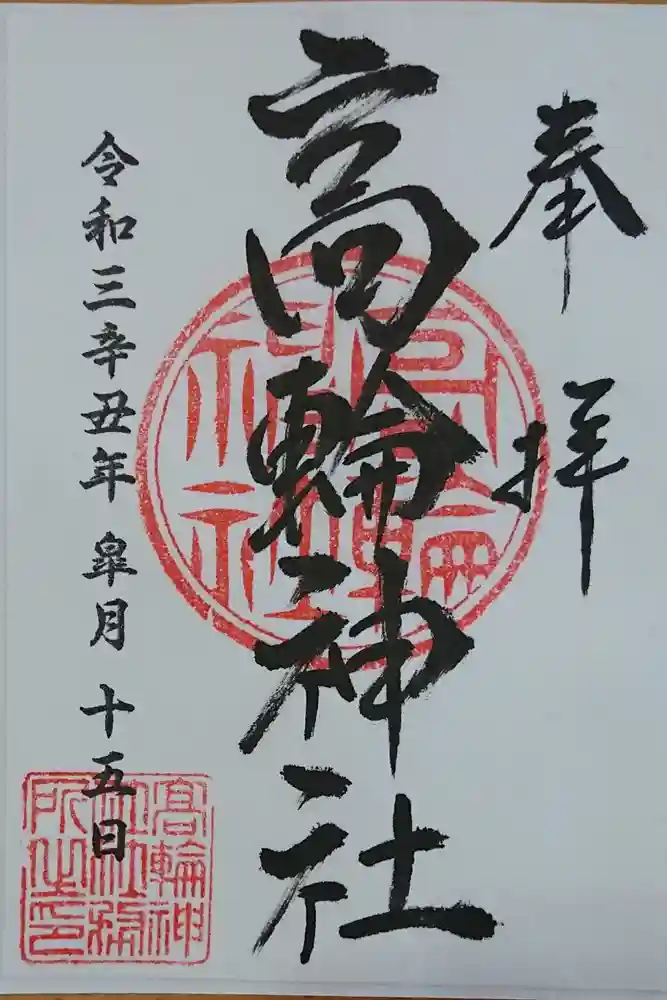 奉拝
高輪神社
令和三辛丑年 皐月 十五日
高輪神社
高輪神社社務所之印